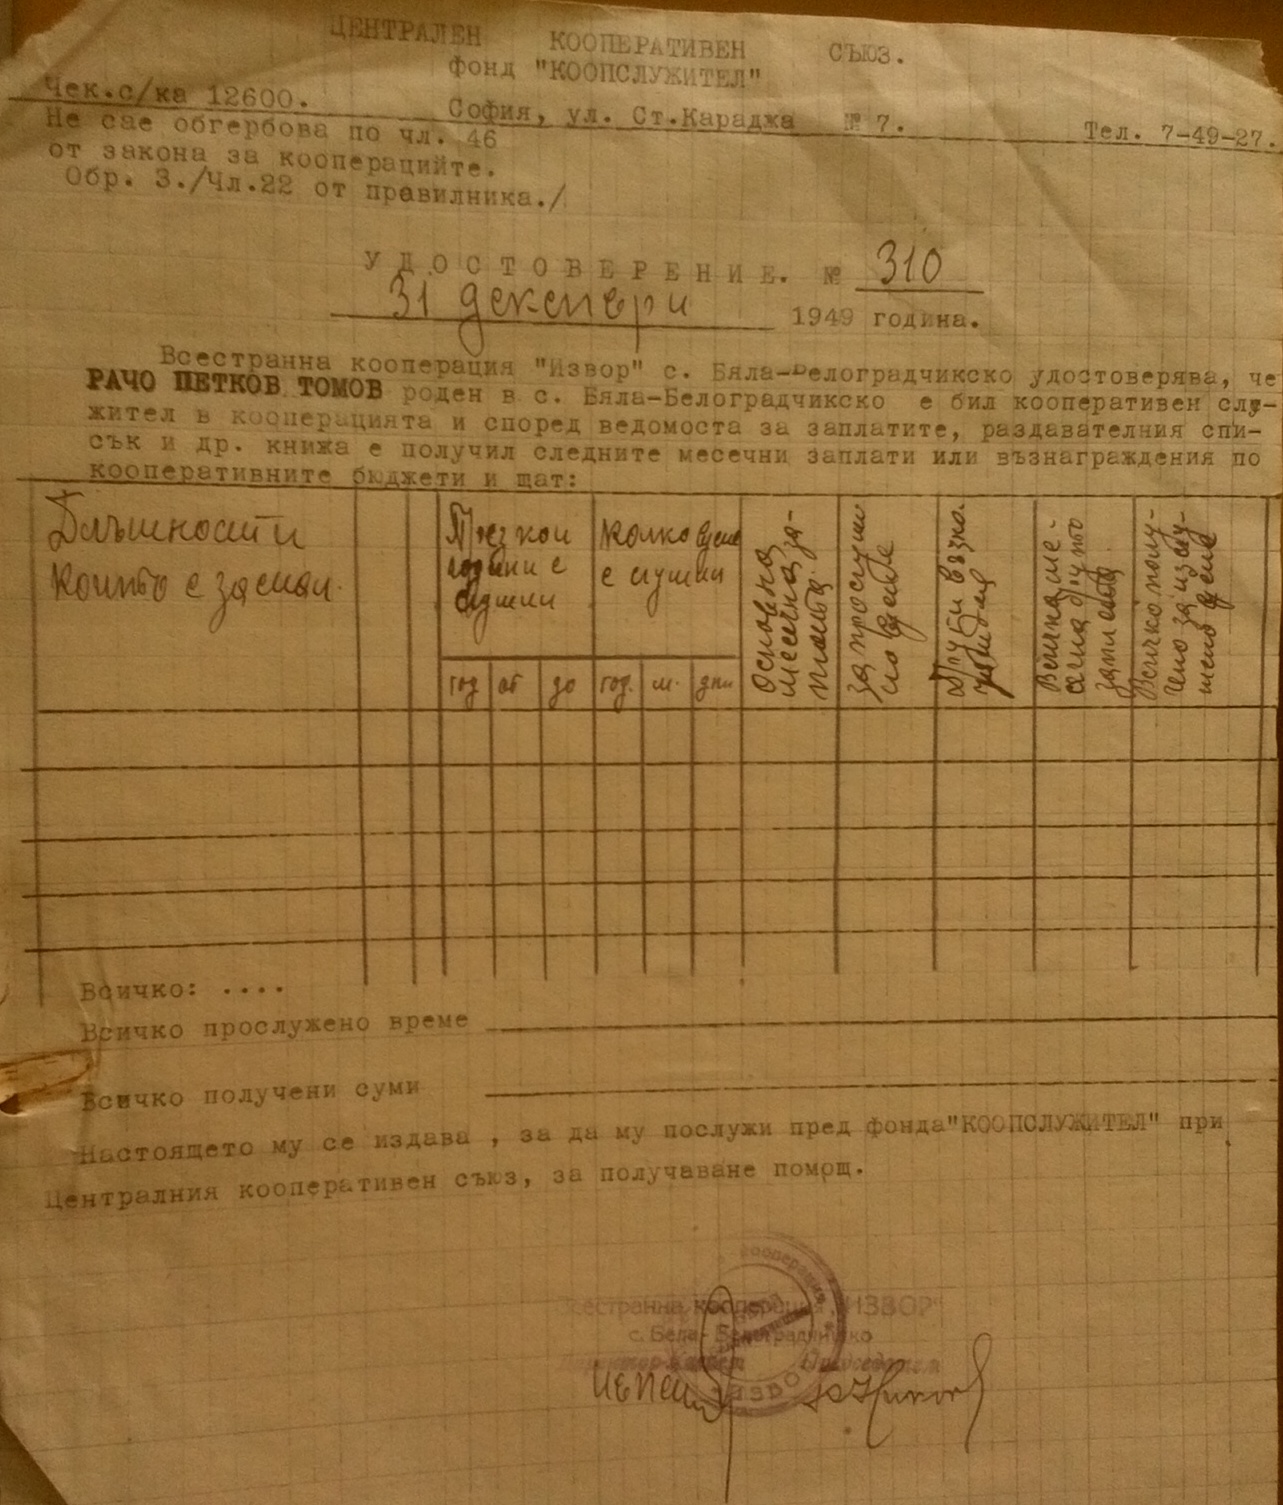 ЦЕНТРАЛЕН КООПЕРАТИВЕН СЪЮЗ.
фонд "КООПСЛУЖИТЕЛ"
Чек.с/ка 12600. София, ул. Ст.Караджа № 7. Тел. 7-49-27.
Не сае обгербова по чл. 46
от закона за кооперацийте.
Обр. 3./Чл.22 от правилника./
УДОСТОВЕРЕНИЕ. № 310
31 декември 1949 година.
Всестранна кооперация "Извор" с. Бяла-Белоградчикско удостоверява, че
РАЧО ПЕТКОВ ТОМОВ роден в с. Бяла-Белоградчикско е бил кооперативен слу-
жител в кооперацията и според ведомоста за заплатите, раздавателния спи-
сък и др. книжа е получил следните месечни заплати или възнаграждения по
кооперативните бюджети и щат:
Длъжности
които е заемал.
През кои
години е
служил
Колко време
е служил
год от до год. м. дни
Основна
месечна за-
плата.
За прослужено
време
Други възна
Всичко ме-
сечна бруто
заплата
Всичко полу-
чено за изслу-
жено време
Всичко: ....
Всичко прослужено време
Всичко получени суми
Настоящето му се издава , за да му послужи пред фонда"КООПСЛУЖИТЕЛ" при
Централния кооперативен съюз, за получаване помощ.
Всестранна кооперация „ИЗВОР"
с. Бела-Белоградчишко
Директор-Касиер Председател